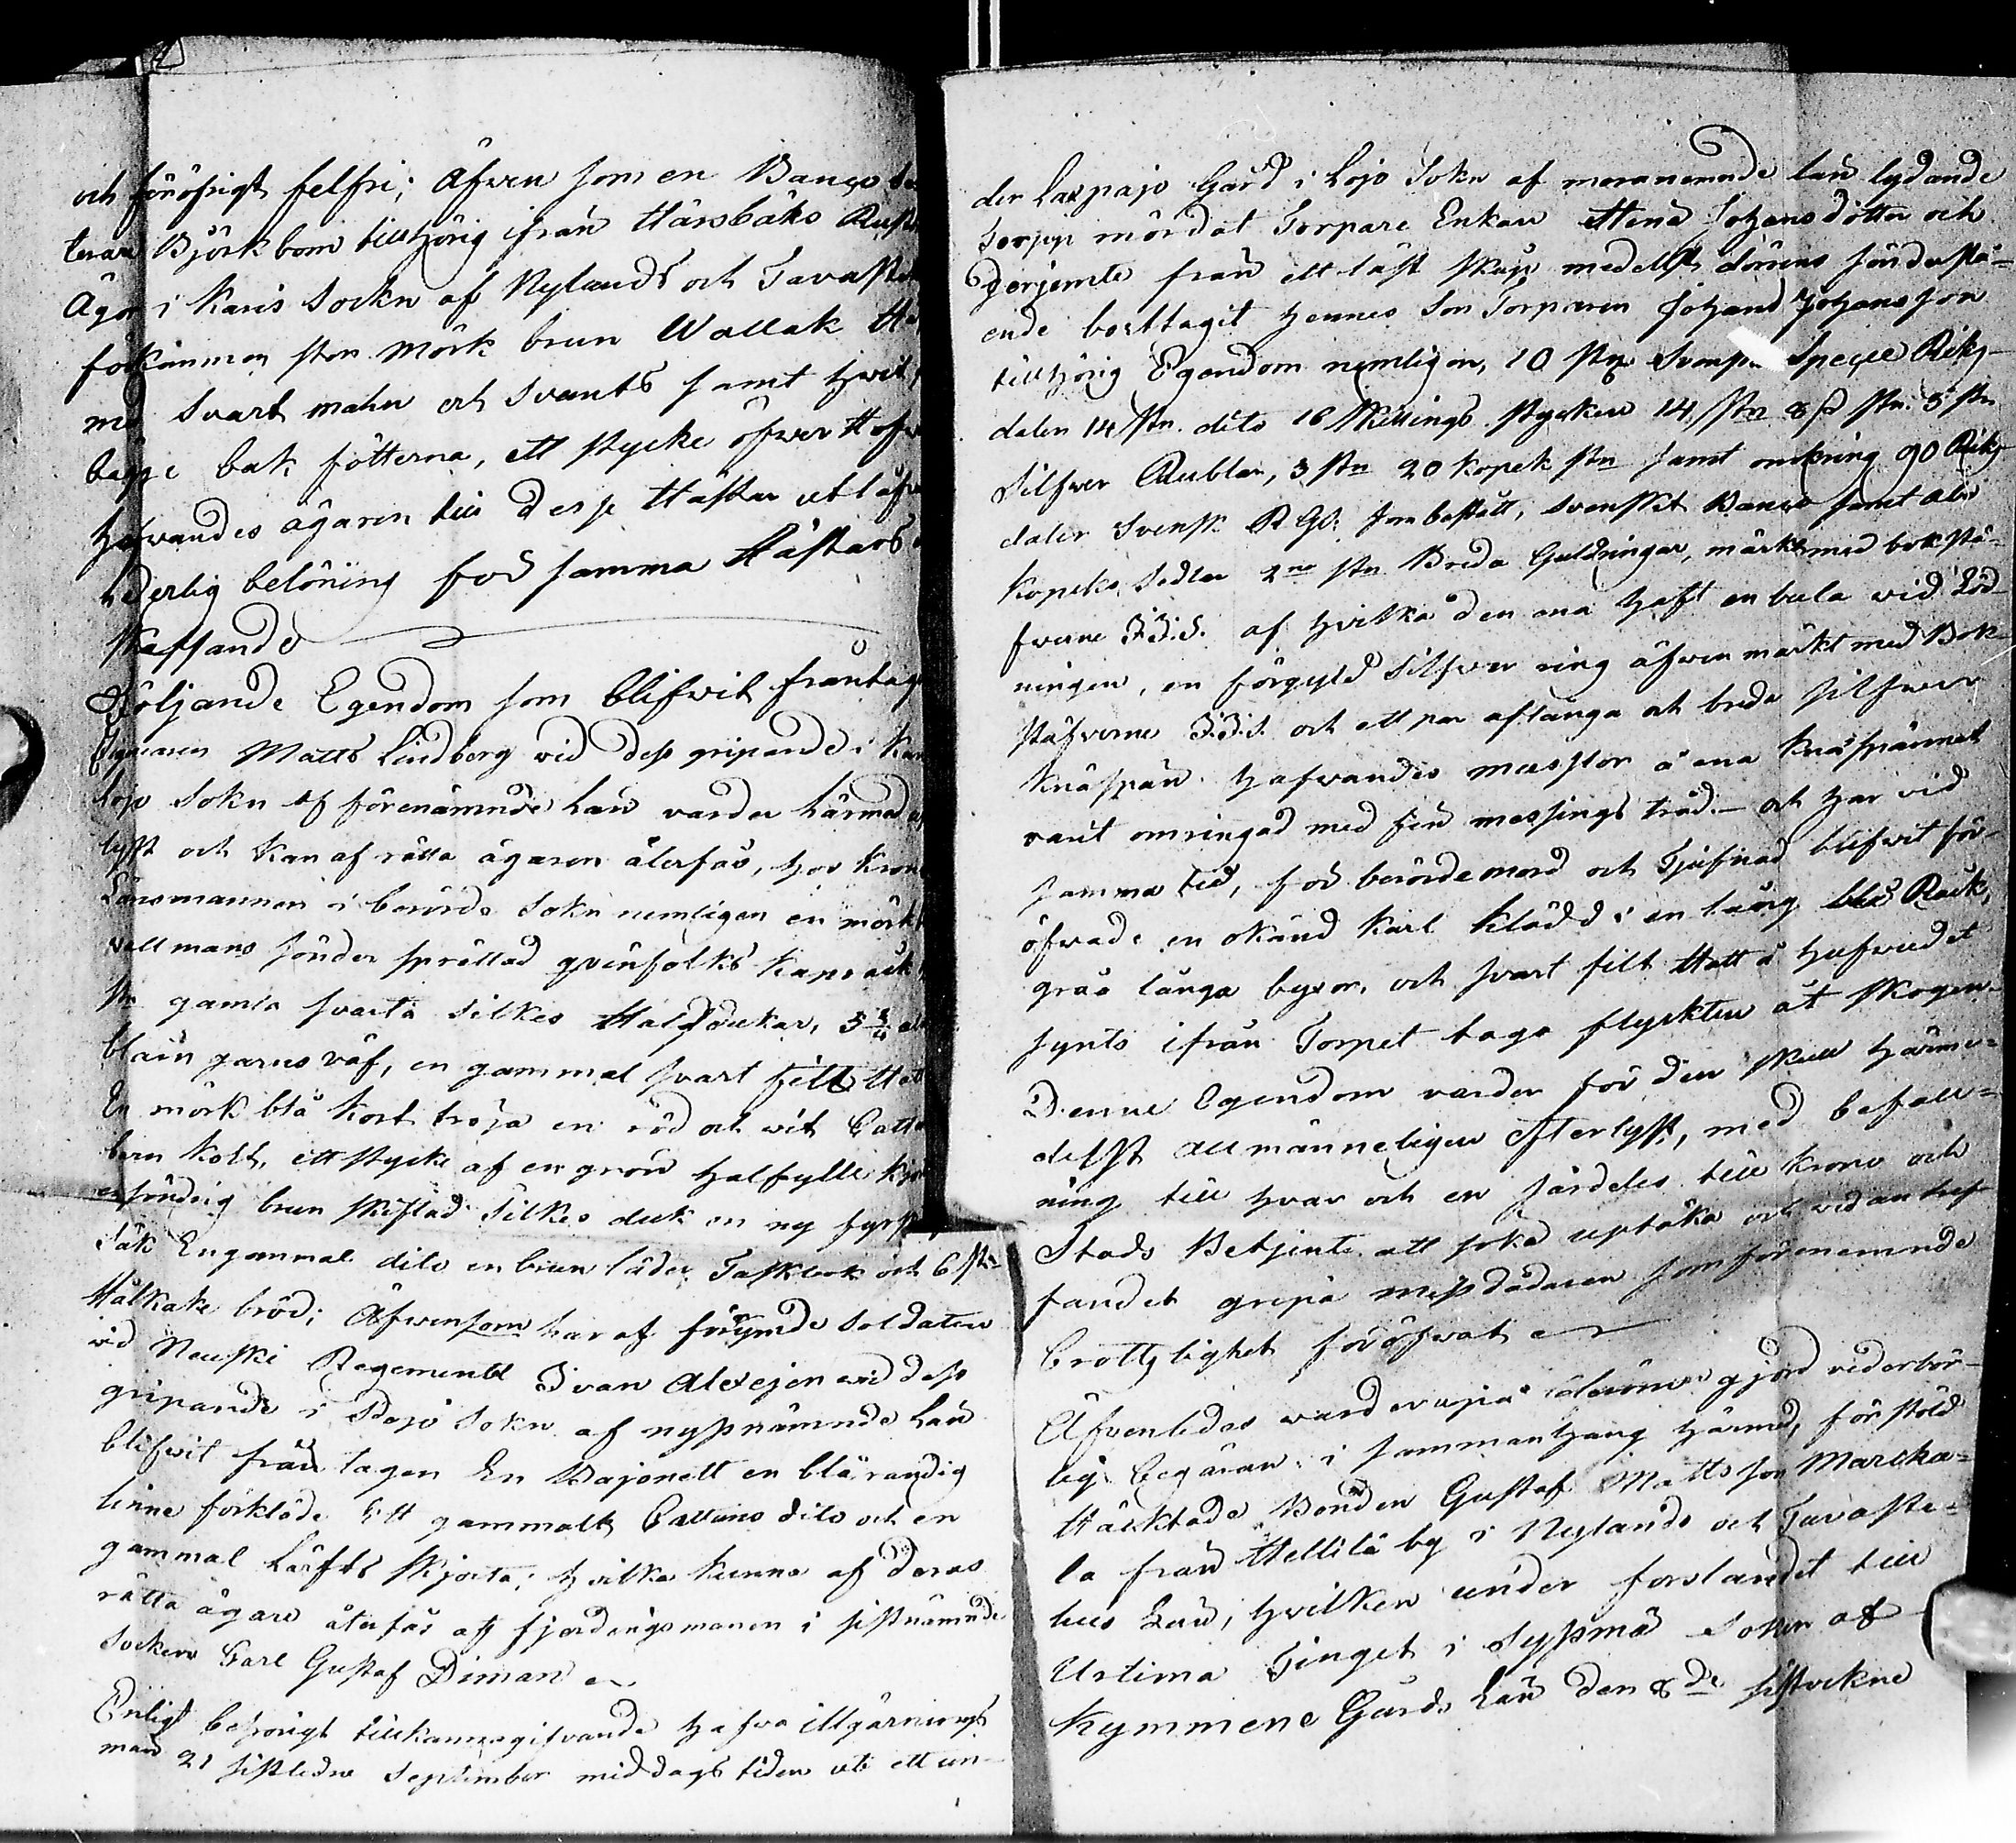 och föröfrigt felfri; Äfwen som en Banco
teraren Björkbom tillhörig ifrån Hårsbäks Rust
Ägor i Karis Sockn af Nylands och Tavaste
förkommen stor mörk brun Wallak
med svart mahn och svants samt hwit
bägge bak fötterna, ett stycke öfwer Hofw
hafvandes ägaren till desse Hästar utläfw
hederlig belöning för samma Hästars
skaffande
Följande Egendom som blifwit fråntag
Matts Lindberg wid dess gripande i Kar
lojo Sokn af förenämnde Län warder härmed
lyst och kan af rätta ägaren återfås, hos Krono
Länsmannen i berörde Sokn nemligen en mörk
vallmans sönder sprättad qvinfolks Kapråck
st. gamla svarta Silkes Halsdukar, 5 3/4 al
blårn garns väf, en gammal svart filt Hatt
En mörk blå kort tröja en röd och vit Cattu
barn kolt, ett stycke af en grön halfylle kjo
en söndrig brun skiftad Silkes duk en ny
Säk En gammal dito en brun läder Taskbok och 6 st:r
Hålkake bröd; Äfwensom har af förrymde Soldaten
wid Neuski Regemente Ivan Alexejen wid dess
gripande i Pojo Sokn af nyssnämnde Län
blifvit från tagen En Bajonett en blårandig
linne förkläde Ett gammalt Cattuns dito och en
gammal Lärfts Skjorta; hvilka kunna af deras
rätta ägare återfås af fjerdingsmannen i sistnämnde
Socken Carl Gustaf Diman
Enligt behörigt tillkännagifvande hafva illgärnings
män 21 sistledne September middags tiden uti ett un-
der Laxpajo Gård i Lojo Sokn af meranemnde län lydande
Torpp mördat Torpare Enkan Hena Johansdotter och
derjemte från ett låst skåp medelst dörrens sönderslå-
ende borttagit hennes Son Torparen Johand Johansson
tillhörig Egendom nemligen, 10 st:r Svenska Specie Riks
daler 14 st:n. dito 16 Skillings stycken 14 st:n 8 ß st:n. 5 st:n
Silfwer Rublar, 3 st:n 20 kopek st:n samt omkring 90 Riks
daler Svensk RGS. som bestått, Svenskt Banco samt
Kopeks Sedlar 2ne st:n Breda Guldringar, märkt med bokstä-
fwerne J.J.S. af hvilka den ena haft en bula wid Löd-
ningen, en förgyld Silfwer ring äfwen märkt med Bok-
stäfverne J.J.S. och ett par aflånga och breda silfwer
Knäspän hafvandes musslor å ena Knäspännet
varit omringad med fin messings tråd. och har vid
samma tid, för berörde mord och Tjufnad blifwit för-
öfvade, en okänd karl klädd i en lång blå Råck,
gråa långa byxor, och svart filt Hatt å hufvudet
synts ifrån Torpet taga flyckten åt skogen.
Denne Egendom warder för den skull härme-
delst allmänneligen efterlyst, med befall-
ning till hvar och en särdeles till krono och
Stads Betjente att söka uptäka och vid anträf-
fandet gripa missdådaren som förenemnde
brottslighet föröfvat
Äfvenledes warder uppå derom gjord vederbör-
lig begäran i sammanhang härmed, för stöld
Häcktade Bonden Gustaf Mattsson Marcka-
la från Hellilä by i Nylands och Tavaste-
hus Län, hvilken under forslandet till
Urtima Tinget i Syssmä Soken af
Kymmene Gårds Län den 8de sistvekne